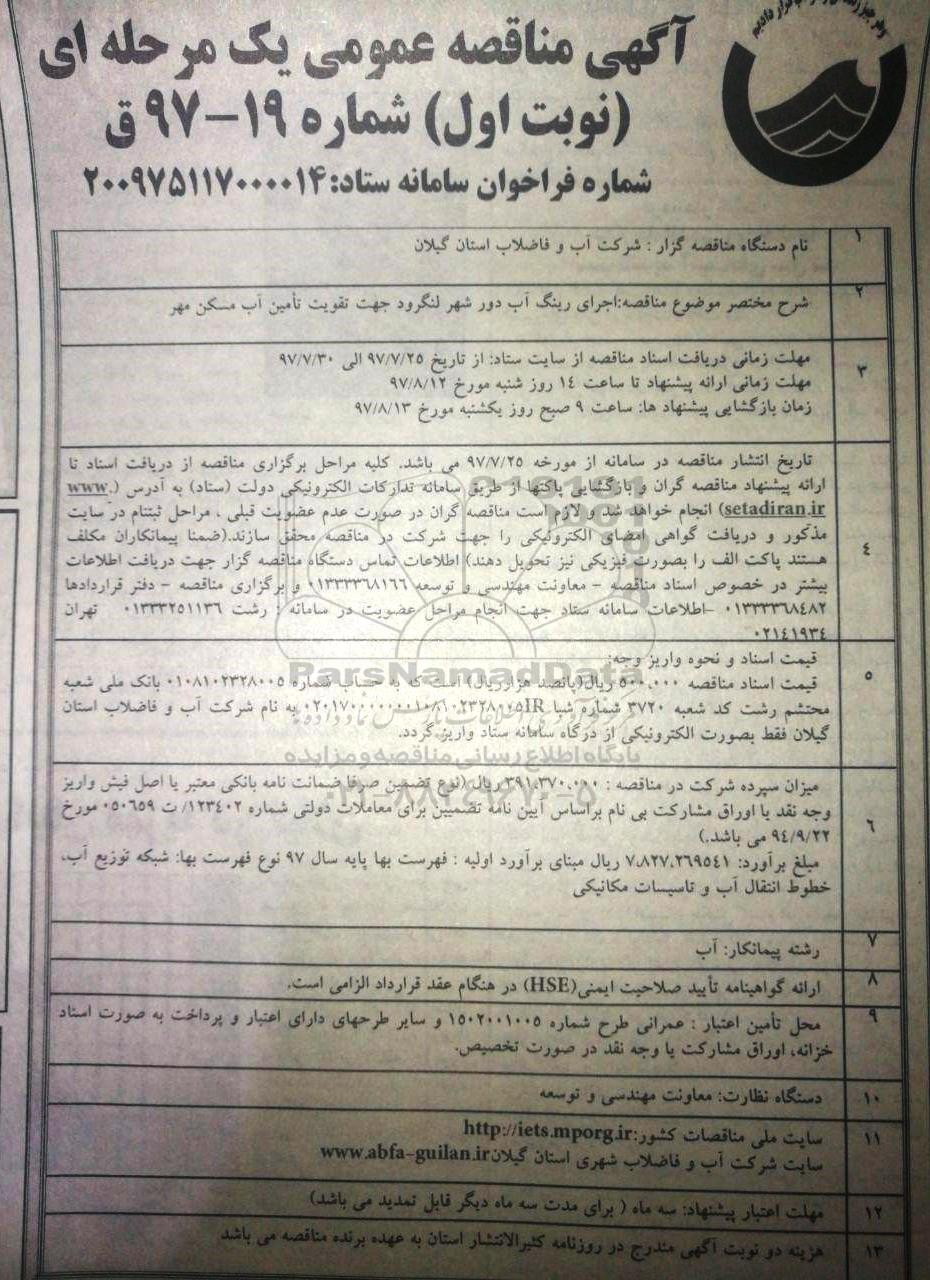 آگهی مناقصه عمومی یک مرحله ای
(نوبت اول) شماره ۱۹-۹۷ ق
شماره فراخوان سامانه ستاد: ۲۰۰۹۷۵۱۱۷۰۰۰۰۱۴
۱ نام دستگاه مناقصه گزار : شرکت آب و فاضلاب استان گیلان
۲ شرح مختصر موضوع مناقصه:اجرای رینگ آب دور شهر لنگرود جهت تقویت تأمین آب مسکن مهر
۳ مهلت زمانی دریافت اسناد مناقصه از سایت ستاد: از تاریخ ۹۷/۷/۲۵ الی ۹۷/۷/۳۰
مهلت زمانی ارائه پیشنهاد تا ساعت ۱۴ روز شنبه مورخ ۹۷/۸/۱۲
زمان بازگشایی پیشنهاد ها: ساعت ۹ صبح روز یکشنبه مورخ ۹۷/۸/۱۳
۴ تاریخ انتشار مناقصه در سامانه از مورخه ۹۷/۷/۲۵ می باشد. کلیه مراحل برگزاری مناقصه از دریافت اسناد تا
ارائه پیشنهاد مناقصه گران و بازگشایی پاکتها از طریق سامانه تدارکات الکترونیکی دولت (ستاد) به آدرس (www.
setadiran.ir) انجام خواهد شد و لازم است مناقصه گران در صورت عدم عضویت قبلی ، مراحل ثبتنام در سایت
مذکور و دریافت گواهی امضای الکترونیکی را جهت شرکت در مناقصه محقق سازند.(ضمنا پیمانکاران مکلف
هستند پاکت الف را بصورت فیزیکی نیز تحویل دهند) اطلاعات تماس دستگاه مناقصه گزار جهت دریافت اطلاعات
بیشتر در خصوص اسناد مناقصه - معاونت مهندسی و توسعه ۰۱۳۳۳۳۶۸۱۶۶ و برگزاری مناقصه - دفتر قراردادها
۰۱۳۳۳۳۶۸۴۸۲ -اطلاعات سامانه ستاد جهت انجام مراحل عضویت در سامانه : رشت ۰۱۳۳۳۲۵۱۱۳۶ تهران
۰۲۱۴۱۹۳۴
۵ قیمت اسناد و نحوه واریز وجه:
قیمت اسناد مناقصه ۵۰۰,۰۰۰ ریال(پانصد هزارریال) است که به حساب شماره ۰۱۰۸۱۰۲۳۲۸۰۰۵ بانک ملی شعبه
محتشم رشت کد شعبه ۳۷۲۰ شماره شبا به نام شرکت آب و فاضلاب استان
گیلان فقط بصورت الکترونیکی از درگاه سامانه ستاد واریز گردد.
۶ میزان سپرده شرکت در مناقصه : ۳۹۱,۳۷۰,۰۰۰ ریال (نوع تضمین صرفا ضمانت نامه بانکی معتبر یا اصل فیش واریز
وجه نقد یا اوراق مشارکت بی نام براساس آیین نامه تضمیین برای معاملات دولتی شماره ۱۲۳۴۰۲/ ت ۰۵۰۶۵۹ مورخ
۹۴/۹/۲۲ می باشد.)
مبلغ برآورد: ۷,۸۲۷,۲۶۹۵۴۱ ریال مبنای برآورد اولیه : فهرست بها پایه سال ۹۷ نوع فهرست بها: شبکه توزیع آب،
خطوط انتقال آب و تاسیسات مکانیکی
۷ رشته پیمانکار: آب
۸ ارائه گواهینامه تأیید صلاحیت ایمنی(HSE) در هنگام عقد قرارداد الزامی است.
۹ محل تأمین اعتبار : عمرانی طرح شماره ۱۵۰۲۰۰۱۰۰۵ و سایر طرحهای دارای اعتبار و پرداخت به صورت اسناد
خزانه، اوراق مشارکت یا وجه نقد در صورت تخصیص.
۱۰ دستگاه نظارت: معاونت مهندسی و توسعه
۱۱ سایت ملی مناقصات کشور:http://iets.mporg.ir
سایت شرکت آب و فاضلاب شهری استان گیلانwww.abfa-guilan.ir
۱۲ مهلت اعتبار پیشنهاد: سه ماه ( برای مدت سه ماه دیگر قابل تمدید می باشد)
۱۳ هزینه دو نوبت آگهی مندرج در روزنامه کثیرالانتشار استان به عهده برنده مناقصه می باشد
ParsNamadData
پایگاه اطلاع رسانی مناقصه و مزایده